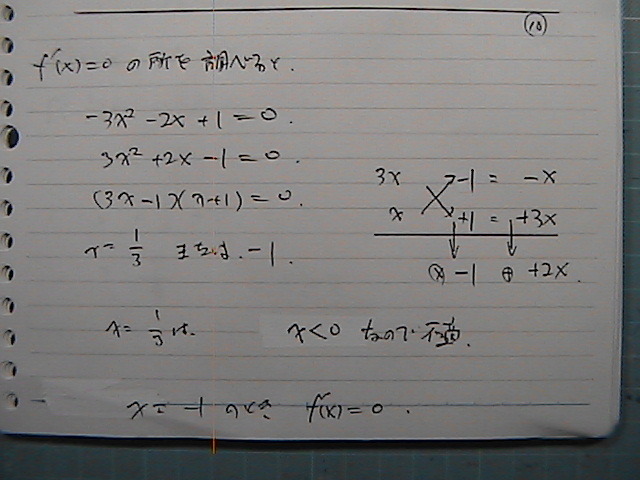 ⑩
f'(x)=0 の所を調べると.
-3x² -2x +1 = 0.
3x² +2x -1 = 0.
(3x-1)(x+1) = 0.
3x -1 = -x
x +1 = +3x
⊗ -1 ⊕ +2x.
x = 1/3 または. -1.
x = 1/3 は. x<0 なので不適.
x = -1 のとき f'(x)=0.